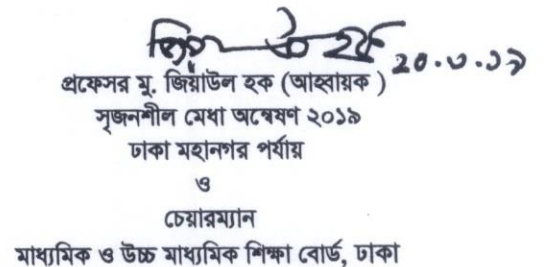 ২০.৩.১৯
প্রফেসর মু. জিয়াউল হক (আহ্বায়ক )
সৃজনশীল মেধা অন্বেষণ ২০১৯
ঢাকা মহানগর পর্যায়
ও
চেয়ারম্যান
মাধ্যমিক ও উচ্চ মাধ্যমিক শিক্ষা বোর্ড, ঢাকা